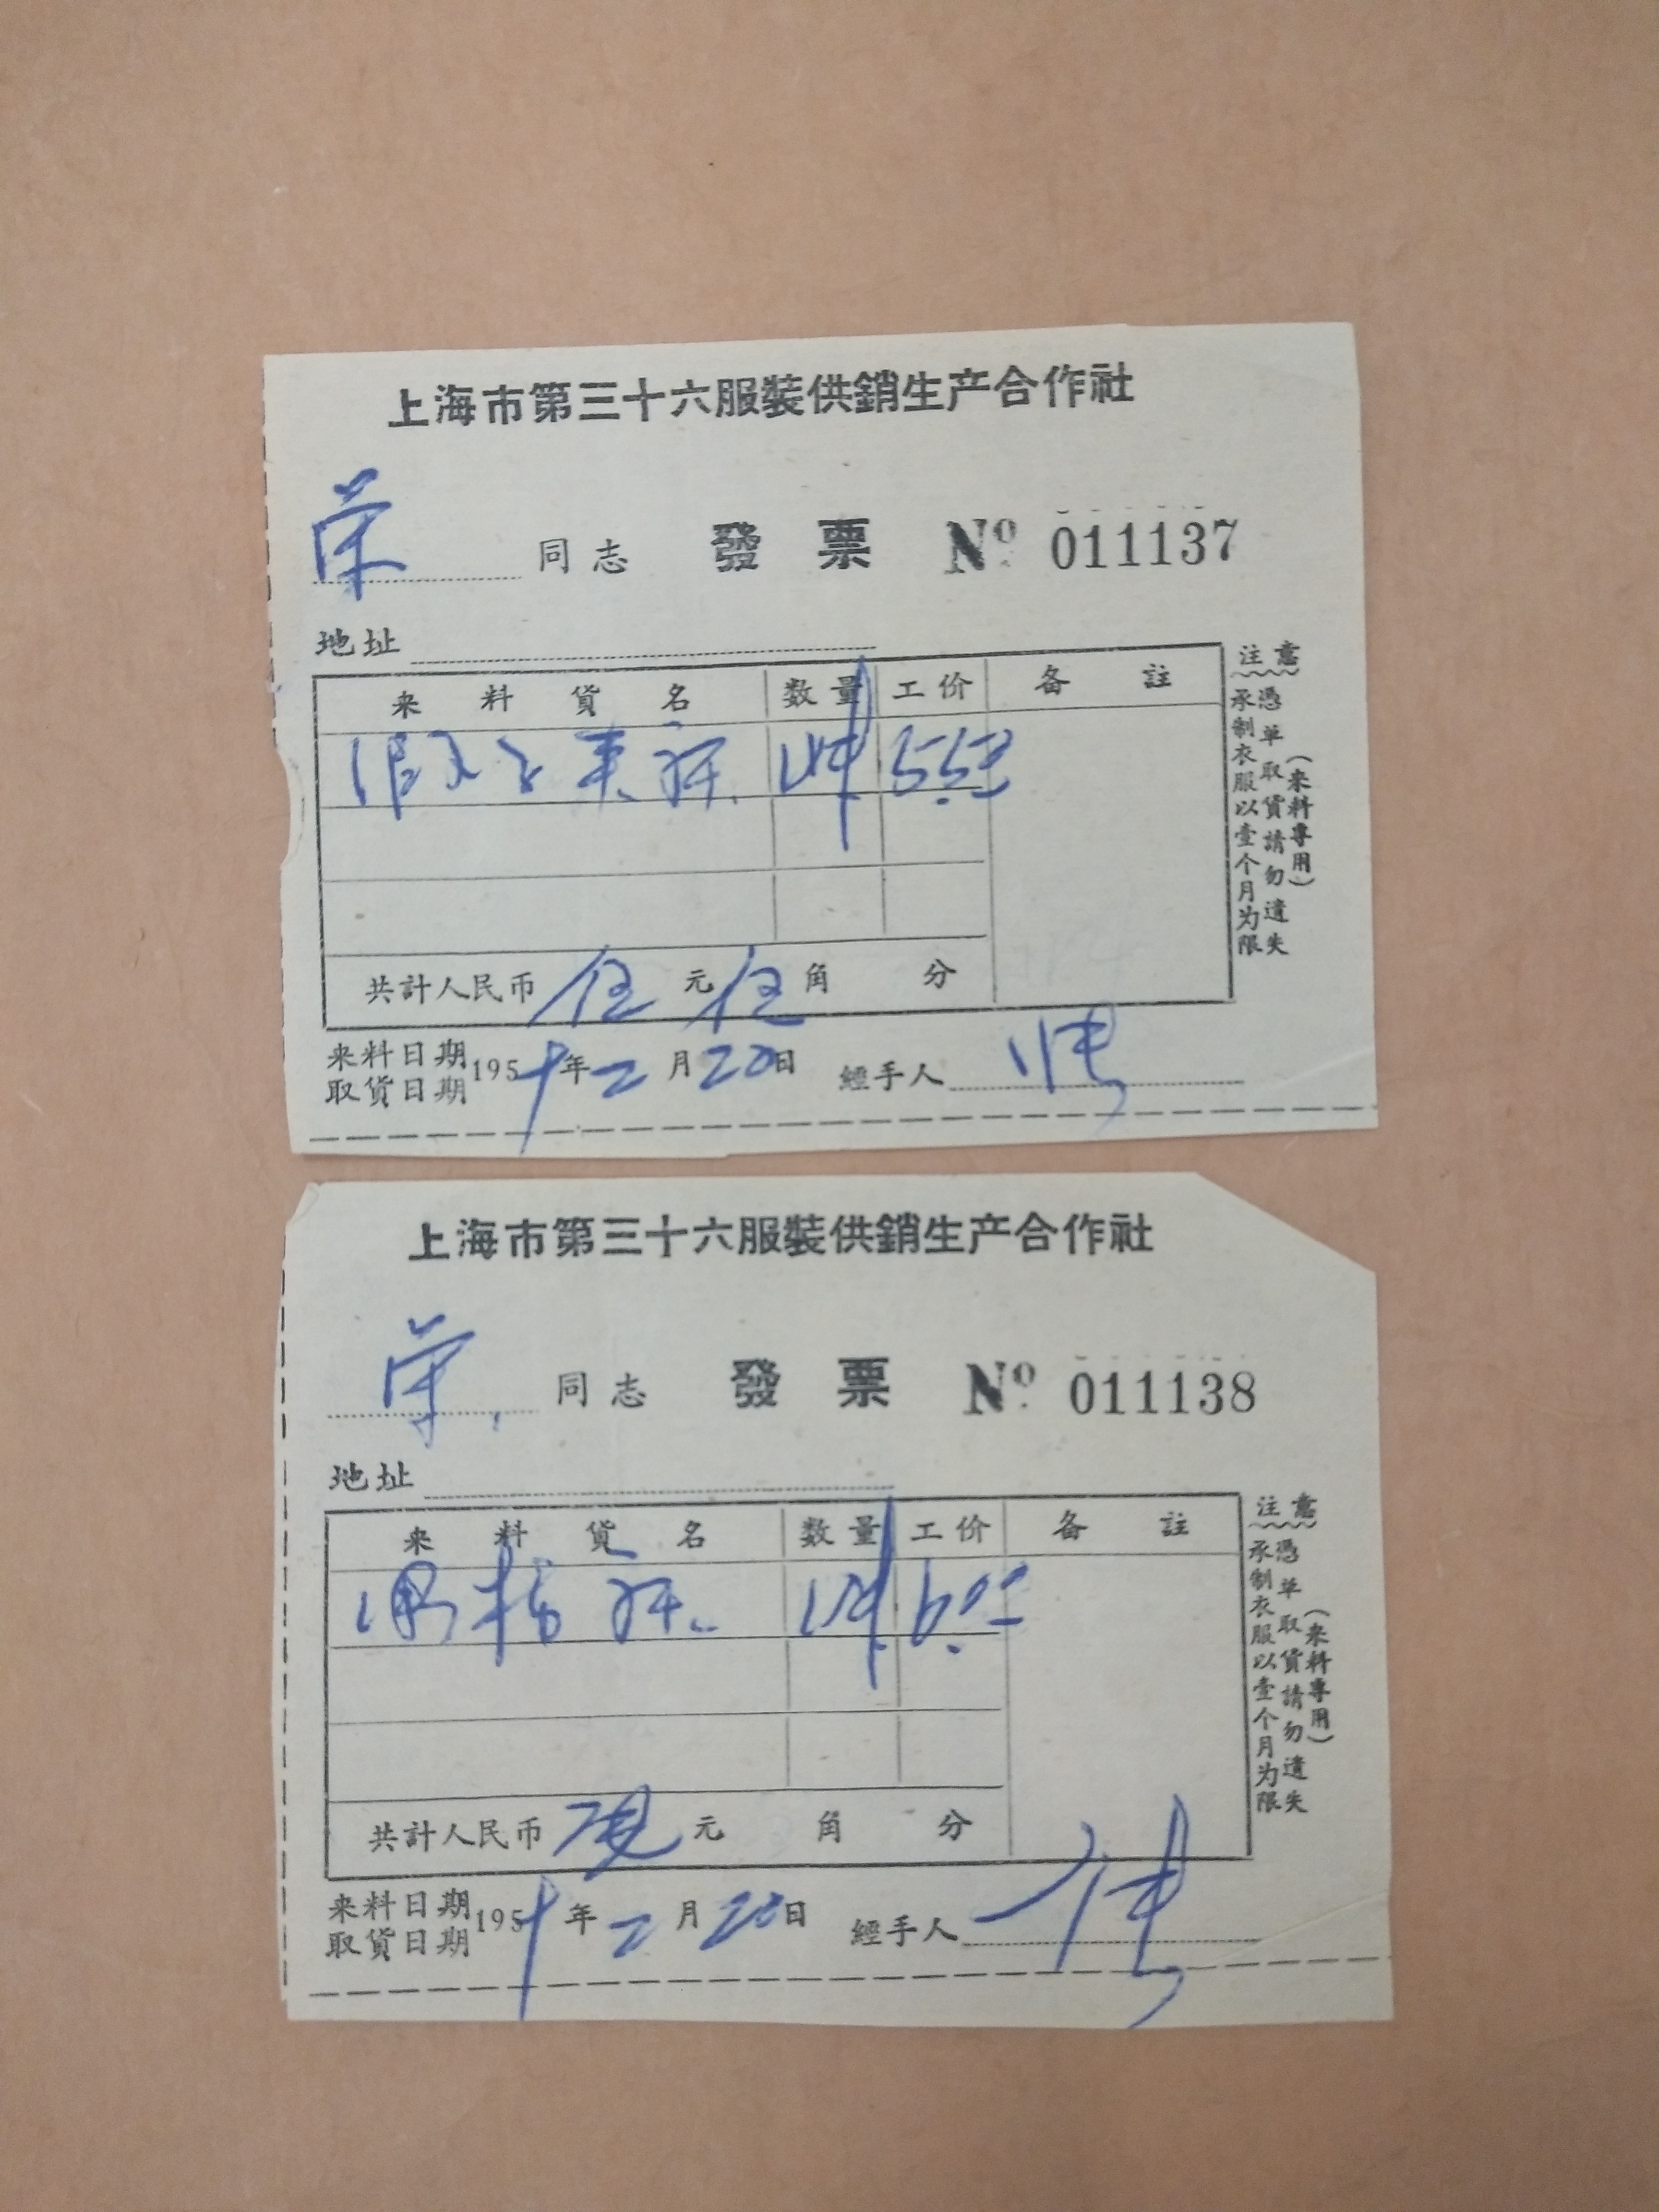 上海市第三十六服裝供銷生产合作社
荣 同志 發票 Nº 011137
地址
来料貨名 数量 工价 备註
1件 5.50
共計人民币 伍 元 伍 角 分
来料日期
取貨日期 1959年二月20日 經手人
注意
憑單取貨請勿遺失
承制衣服以壹个月为限
（来料專用）
上海市第三十六服裝供銷生产合作社
荣 同志 發票 Nº 011138
地址
来料貨名 数量 工价 备註
1件 6.00
共計人民币 元 角 分
来料日期
取貨日期 1959年二月20日 經手人
注意
憑單取貨請勿遺失
承制衣服以壹个月为限
（来料專用）